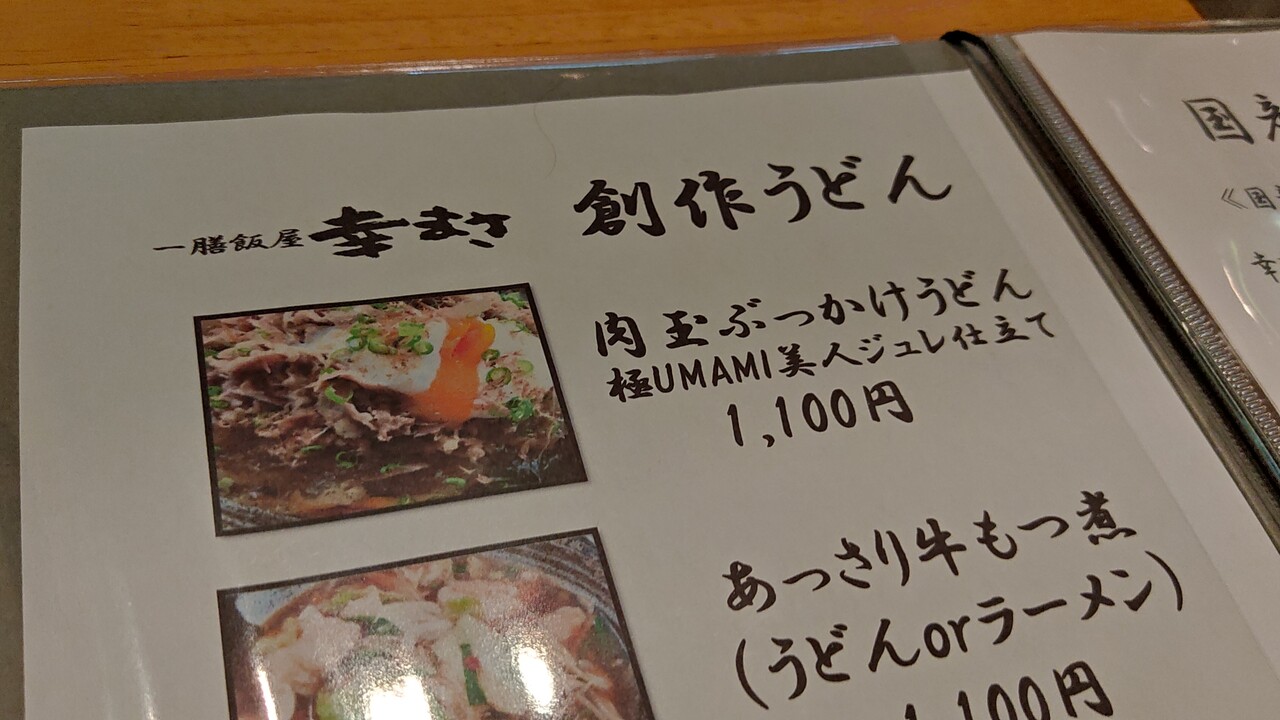 一膳飯屋 幸まさ 創作うどん
肉玉ぶっかけうどん
極UMAMI美人ジュレ仕立て
1,100円
あっさり牛もつ煮
(うどんorラーメン)
1,100円
国
《国
幸